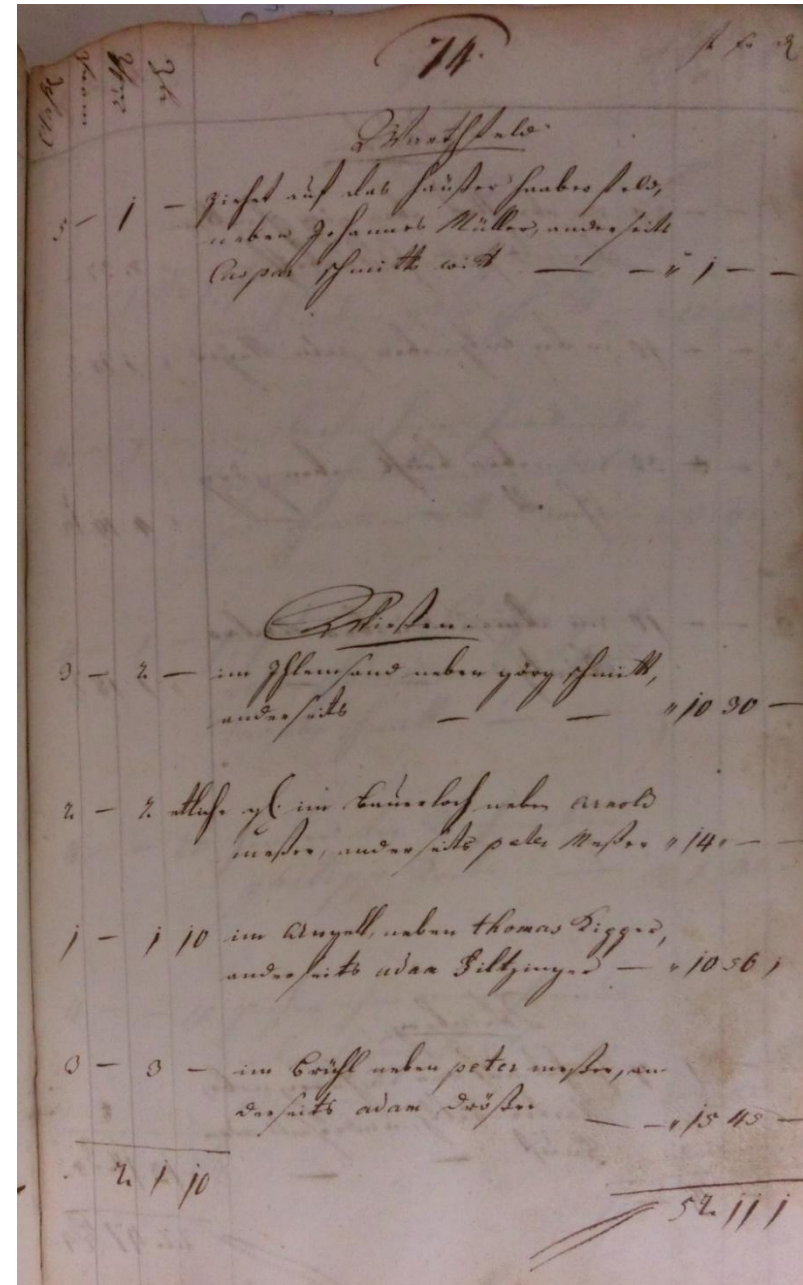 74.
fl xr ₰
Warthfeld
3 – 1 – ziehet auf das häußer haaberfeld,
neben Johannes Müller, anderseits
Caspar schmitts witt — – " 1 – –
Wießen.
3 – 2 – im neben görg schmitt,
anderseits — — " 10 30 –
2 – 2 etliche im Bauerloch neben arnold
meßer, anderseits peter Meßer " 14 " – –
1 – 1 10 im Angell, neben thomas
anderseits adam Filtzinger — " 10 56 1
3 – 3 – im Brühl neben peter meßer, an
derseits adam Drößer — – " 15 45 –
2 1 10
52 11 1